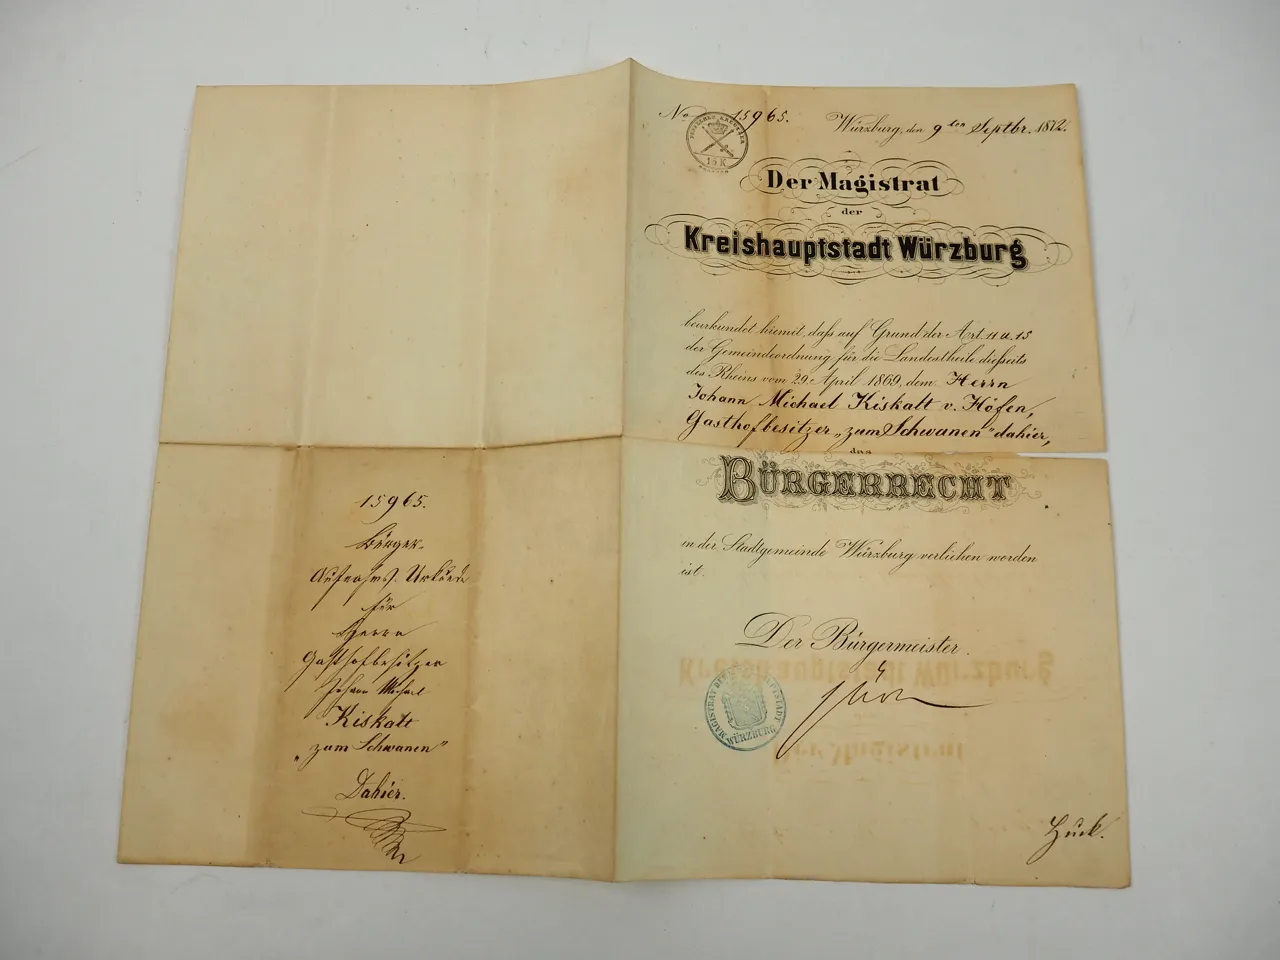 No 15965.
Würzburg, den 9ten Septbr. 1872.
15 K
Der Magistrat
der
Kreishauptstadt Würzburg
beurkundet hiemit, daß auf Grund der Art. 11 u. 15
der Gemeindeordnung für die Landestheile dießseits
des Rheins vom 29. April 1869, dem Herrn
Johann Michael Kiskalt v. Höfen,
Gasthofbesitzer „zum Schwanen" dahier,
das
BÜRGERRECHT
in der Stadtgemeinde Würzburg verliehen worden
ist.
Der Bürgermeister.
MAGISTRAT DER KREISHAUPTSTADT WÜRZBURG
Kreishauptstadt Würzburg
Der Magistrat
Huck.
15965.
Bürger-
Aufnahms-Urkunde
für
Herrn
Gasthofbesitzer
Johann Michael
Kiskalt
„zum Schwanen"
Dahier.